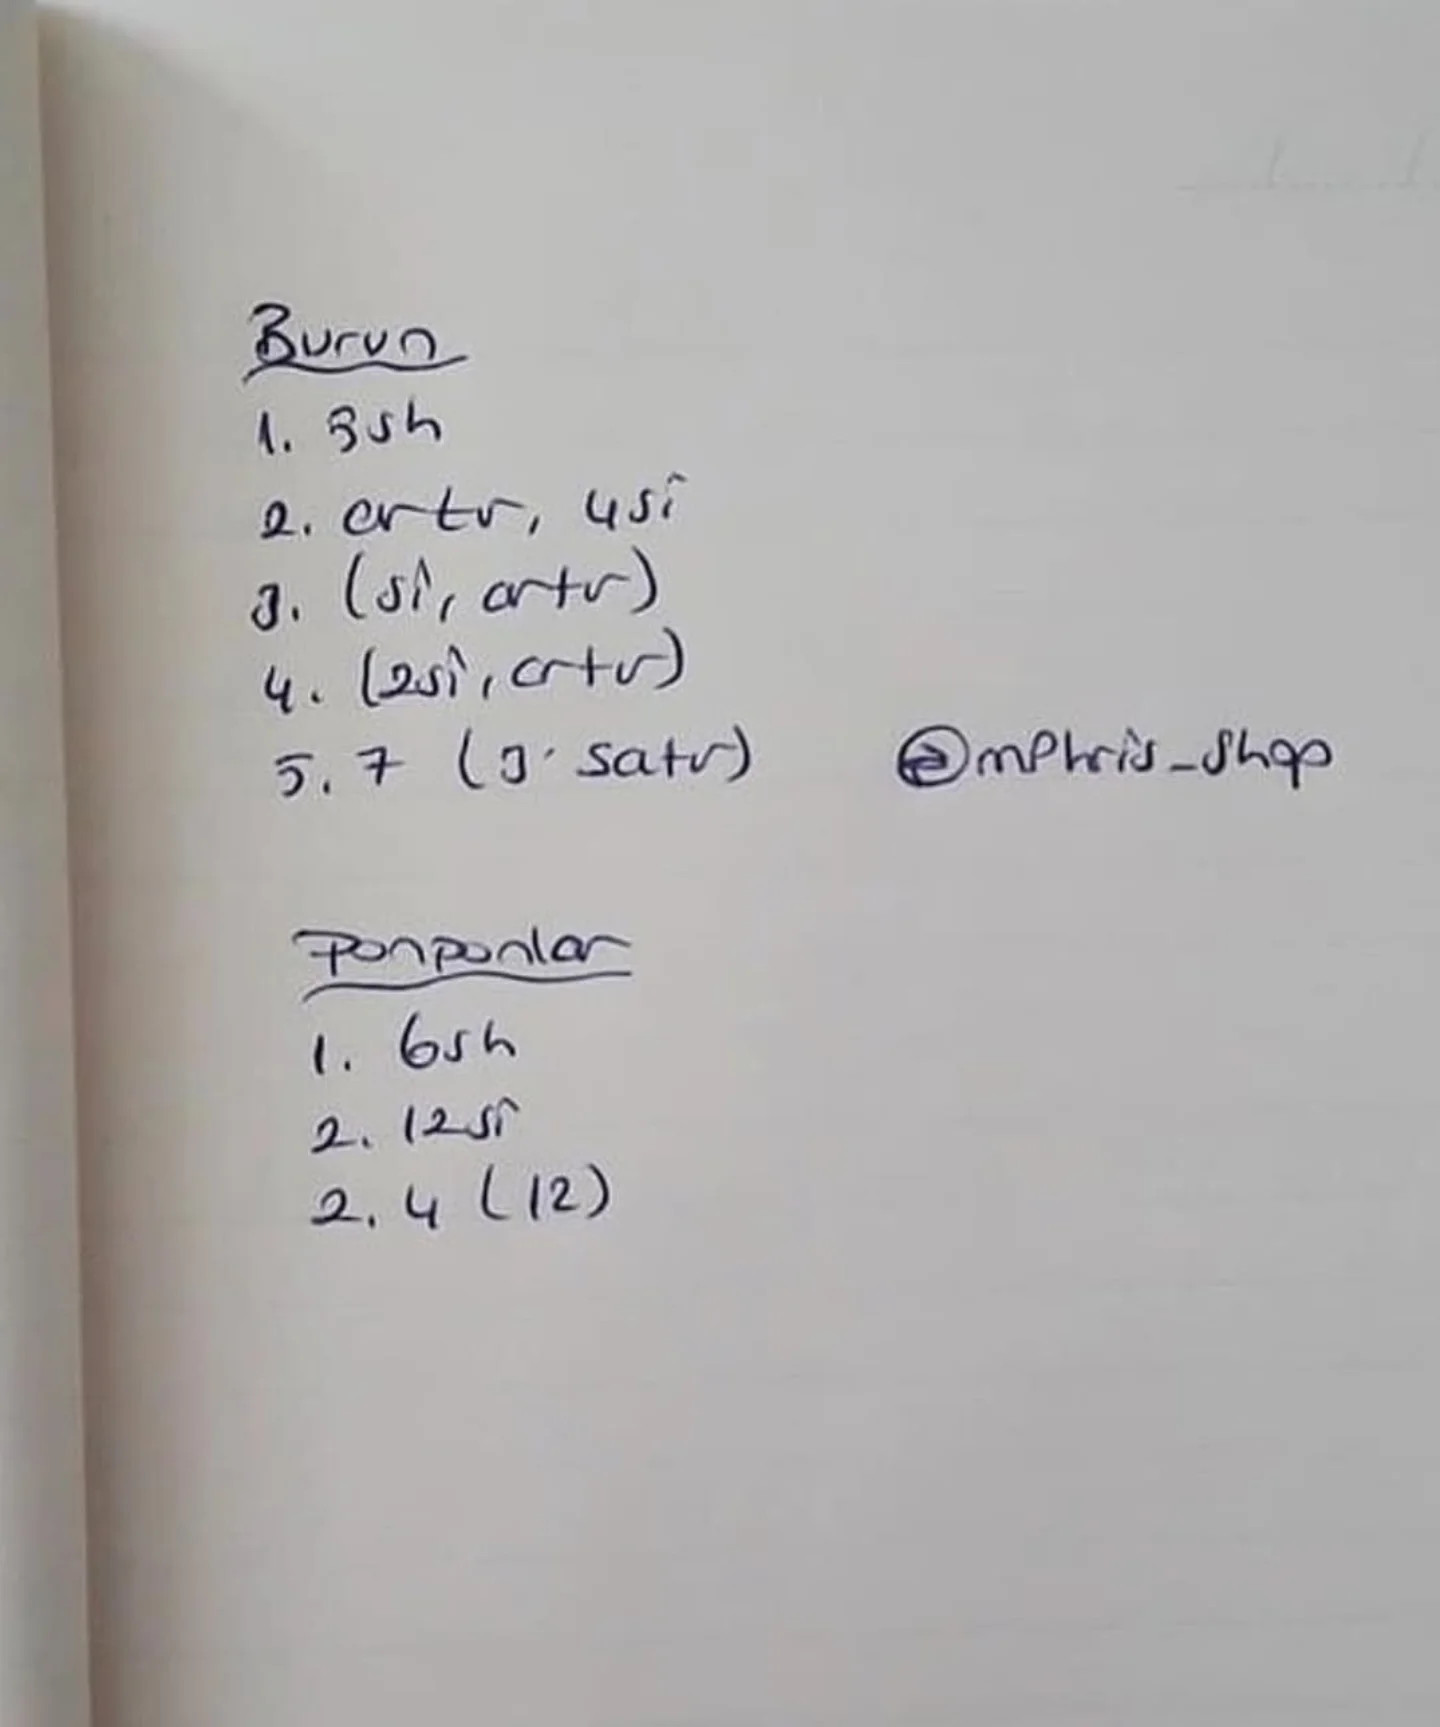 Burun
1. 3sh
2. artr, 4sî
3. (sî, artr)
4. (2sî, artr)
5. 7 (3. satr) @mphris_shop
Ponponlar
1. 6sh
2. 12sî
2. 4 (12)